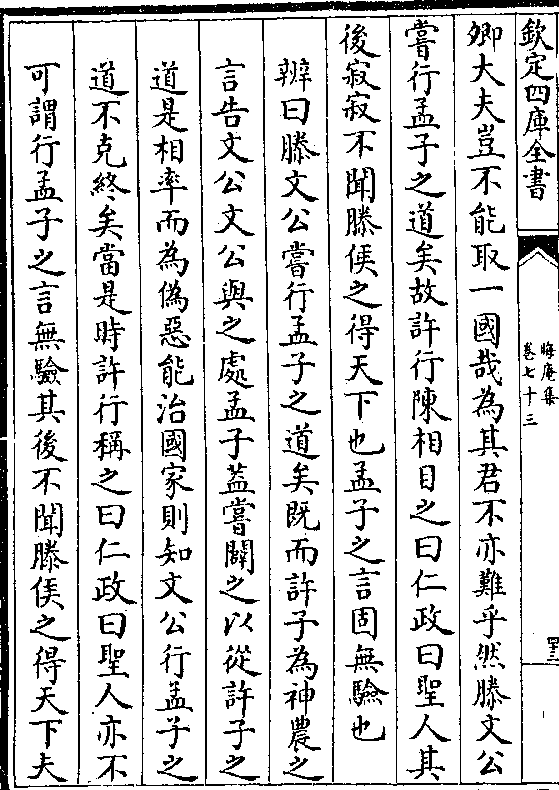 欽定四庫全書
晦庵集
卷七十三
卿大夫豈不能取一國哉為其君不亦難乎然滕文公
嘗行孟子之道矣故許行陳相目之曰仁政曰聖人其
後寂寂不聞滕侯之得天下也孟子之言固無驗也
辨曰滕文公嘗行孟子之道矣既而許子為神農之
言告文公文公與之處孟子葢嘗闢之以從許子之
道是相率而為偽惡能治國家則知文公行孟子之
道不克終矣當是時許行稱之曰仁政曰聖人亦不
可謂行孟子之言無驗其後不聞滕侯之得天下夫